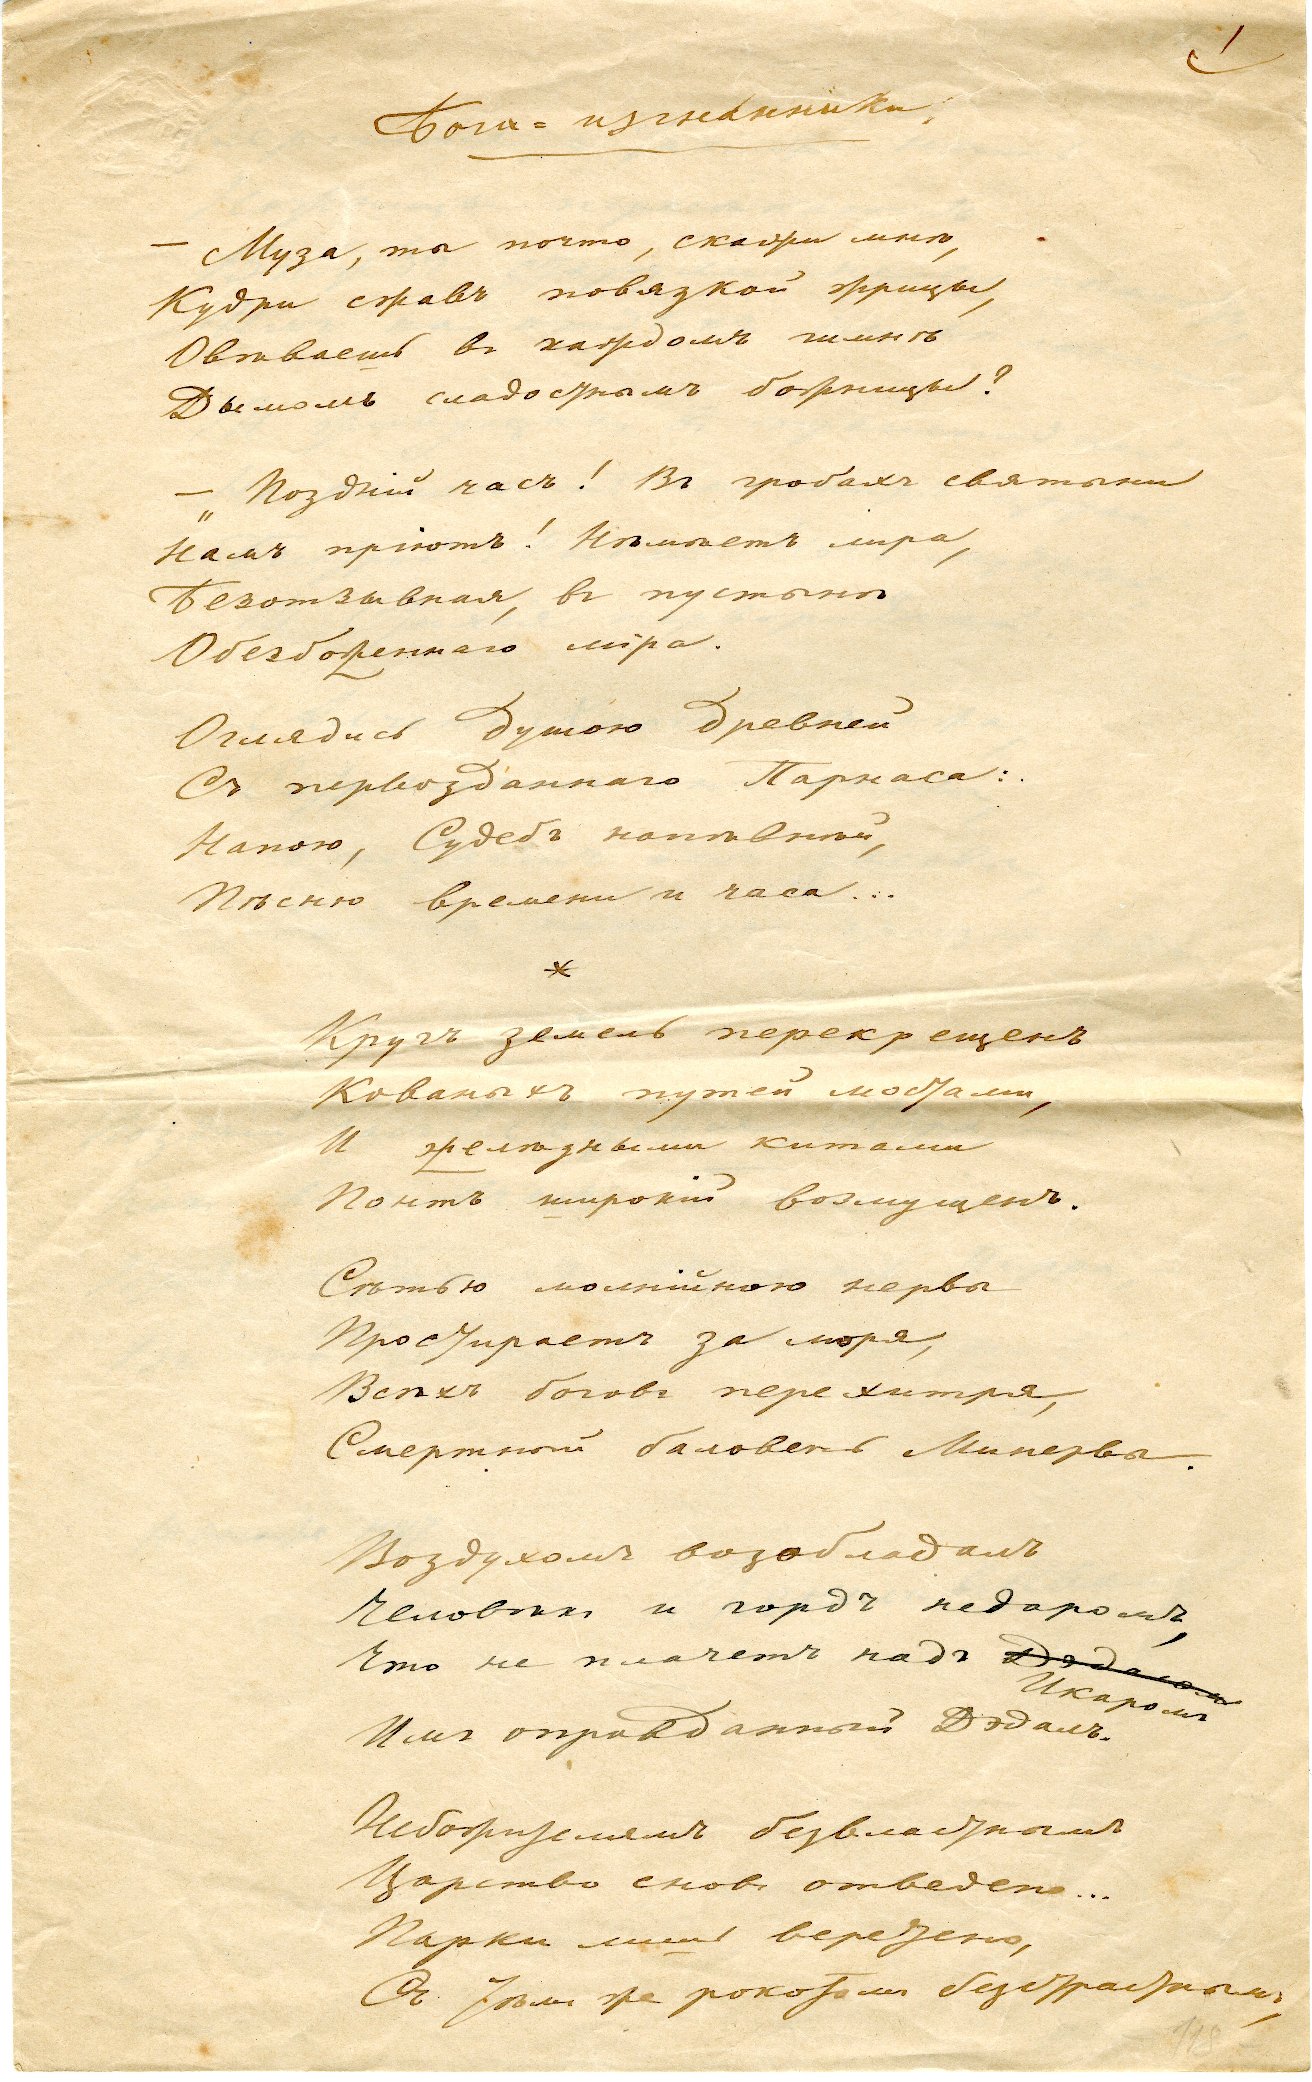 1
Боги-изгнанники.
— Муза, ты почто, скажи мнѣ,
Кудри сжавъ повязкой жрицы,
Овѣваешь въ каждомъ гимнѣ
Дымомъ сладостнымъ божницы?
— „Поздній часъ! Въ гробахъ святыни
Намъ пріютъ! Нѣмѣетъ лира,
Безотзывная, въ пустынѣ
Обезбоженнаго міра.
Оглядись душою древней
Съ первозданнаго Парнаса:
Напою, Судебъ напѣвнѣй,
Пѣсню времени и часа...
*
Кругъ земель перекрещенъ
Кованыхъ путей мостами,
И желѣзными китами
Понтъ широкій возмущенъ.
Сѣтью молнійною нервы
Простираетъ за моря,
Всѣхъ боговъ перехитря,
Смертный баловень Минервы.
Воздухомъ возобладалъ
Человѣкъ и гордъ недаромъ,
Что не плачетъ надъ Дэдаломъ
Икаромъ
Имъ оправданный Дэдалъ.
Небожителямъ безвластнымъ
Царство сновъ отведено...
Парки лишь веретено,
Съ тѣмъ же рокотомъ безстрастнымъ,
118